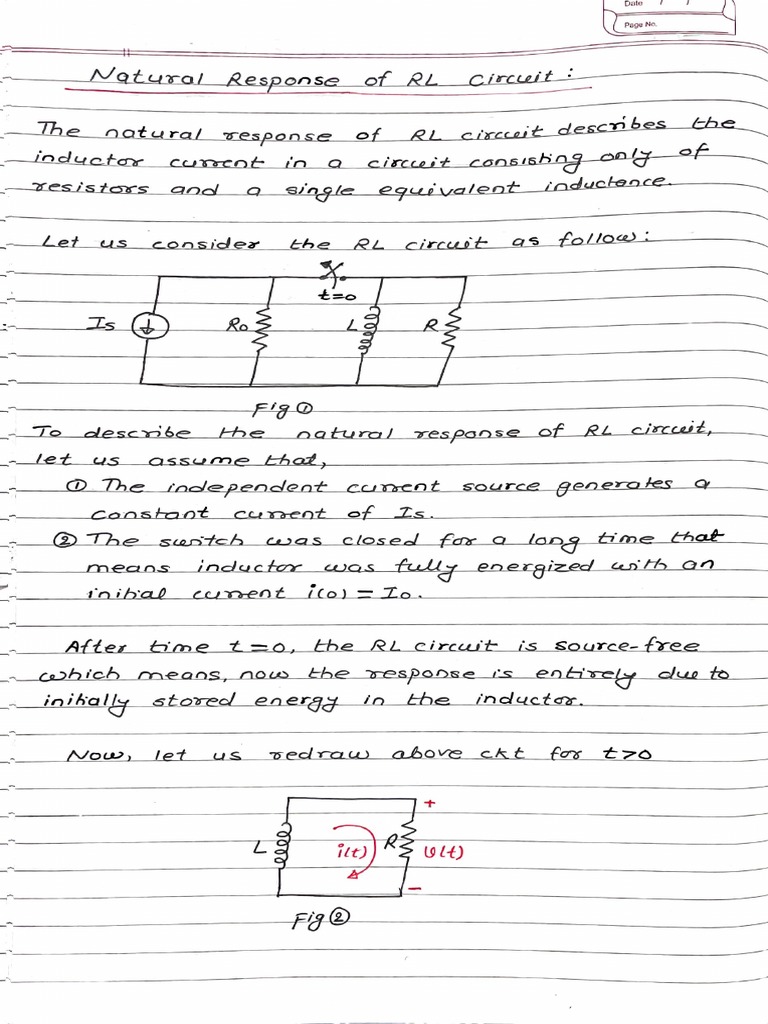 Date / /
Page No.
Natural Response of RL Circuit :
The natural response of RL circuit describes the
inductor current in a circuit consisting only of
resistors and a single equivalent inductance.
Let us consider the RL circuit as follow:
t=0
Is
Ro
L
R
Fig ①
To describe the natural response of RL circuit,
let us assume that,
① The independent current source generates a
constant current of Is.
② The switch was closed for a long time that
means inductor was fully energized with an
initial current i(0) = Io.
After time t=0, the RL circuit is source-free
which means, now the response is entirely due to
initially stored energy in the inductor.
Now, let us redraw above ckt for t>0
+
L
i(t)
R
v(t)
−
Fig ②